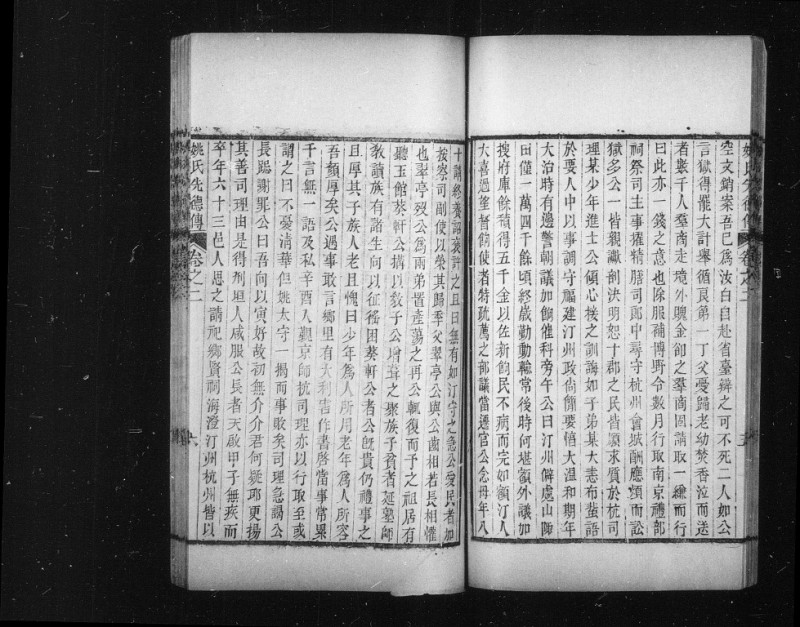 空文銷案吾已為汝白自赴省臺辯之可不死二人如公
言獄得罷大計舉循良第一丁父憂歸老幼焚香泣而送
者數千人羣商走境外贐金卻之羣商固請取一縑而行
曰此亦一錢之意也除服補博野令數月行取南京禮部
祠祭司主事擢精膳司郎中尋守杭州會城酬應煩而訟
獄多公一皆親讞剖決明恕十郡之民皆願來質於杭司
理某少年進士公傾心接之訓誨如子弟某大恚布蜚語
於要人中以事調守屬建汀州政尚簡要值大溫和期年
大治時有邊警朝議加餉催科旁午公曰汀州僻處山陬
田僅一萬四千餘頃終歲勤動輸常後時何堪額外議加
搜府庫餘積得五千金以佐新餉民不病而完如額汀人
大喜過望督餉使者特疏薦之部議當遷官公念母年八
十請終養詔裒計之且曰無有如汀守之急公愛民者加
按察司副使以榮其歸季父翠亭公與公齒相若長相懽
也翠亭歿公為兩弟置產蕩之再公輒復而予之祖居有
聽玉館葵軒公搆以教子公增葺之聚族子貧者延塾師
教讀族有諸生向以征徭困葵軒公者公旣貴仍禮事之
且厚其子族人老且愧曰少年為人所用老年為人所容
吾顏厚矣公遇事敢言鄉里有大利害作書啓當事常累
千言無一語及私辛酉人覲京師杭司理亦以行取至或
謂之曰不憂清華但姚太守一揭而事敗矣司理急謁公
長跽謝罪公曰吾向以寅好故初無介介君何疑耶更揚
其善司理由是得列垣人咸服公長者天啟甲子無疾而
卒年六十三邑人思之請祀鄉賢祠海澄汀州杭州皆以
姚氏先德傳
卷之二
六